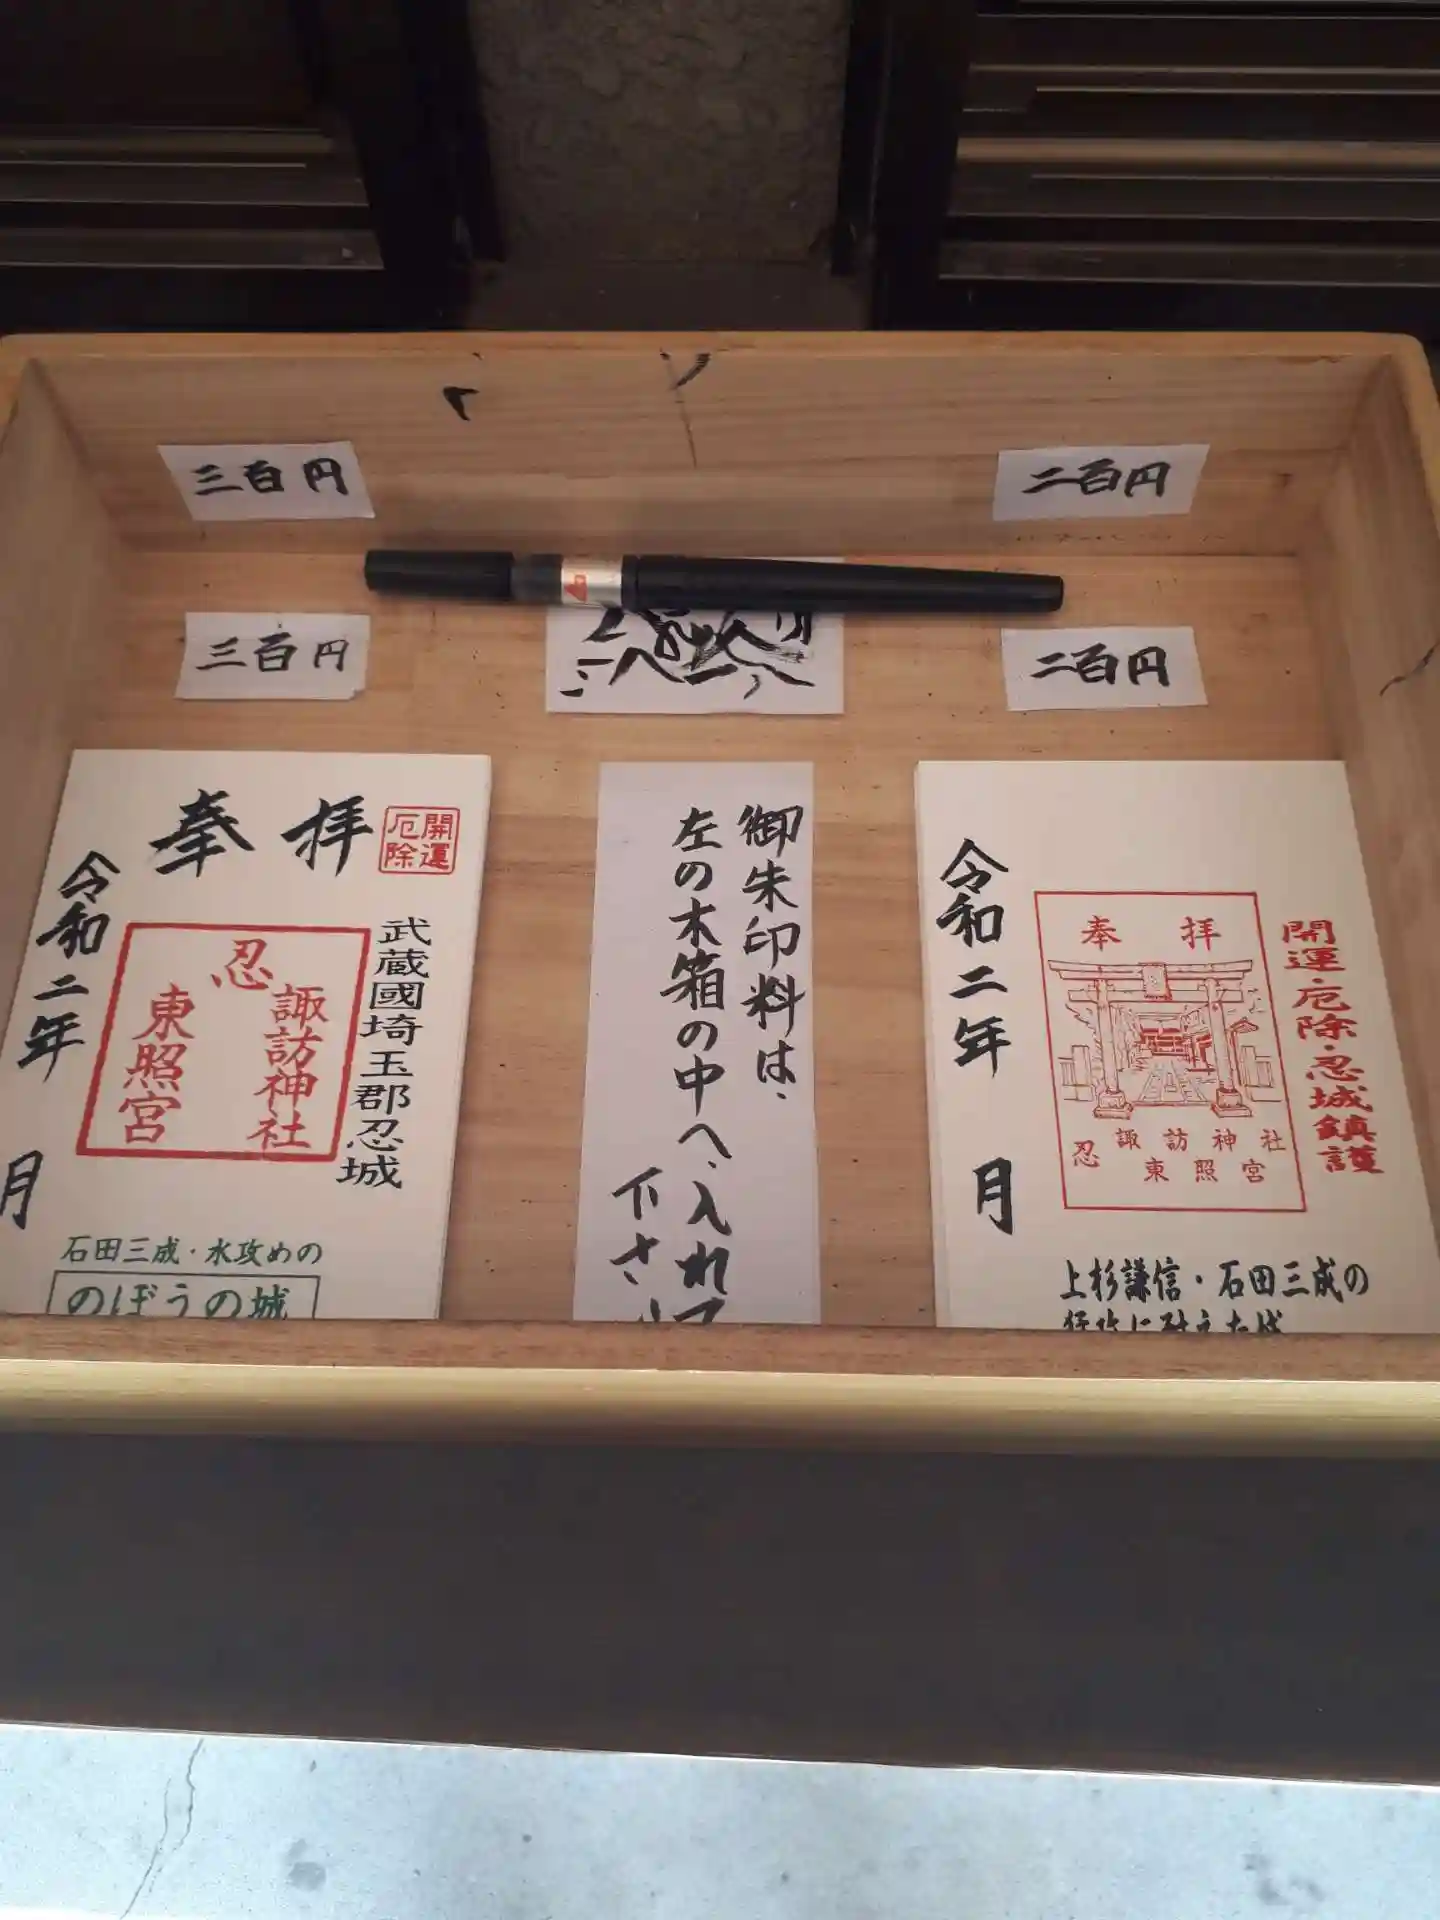 三百円
二百円
三百円
二百円
奉拝
開運
厄除
武蔵國埼玉郡忍城
忍
諏訪神社
東照宮
令和二年
月
石田三成・水攻めの
のぼうの城
御朱印料は、
左の木箱の中へ、入れて
下さい
開運・厄除・忍城鎮護
奉拝
忍
諏訪神社
東照宮
令和二年
月
上杉謙信・石田三成の